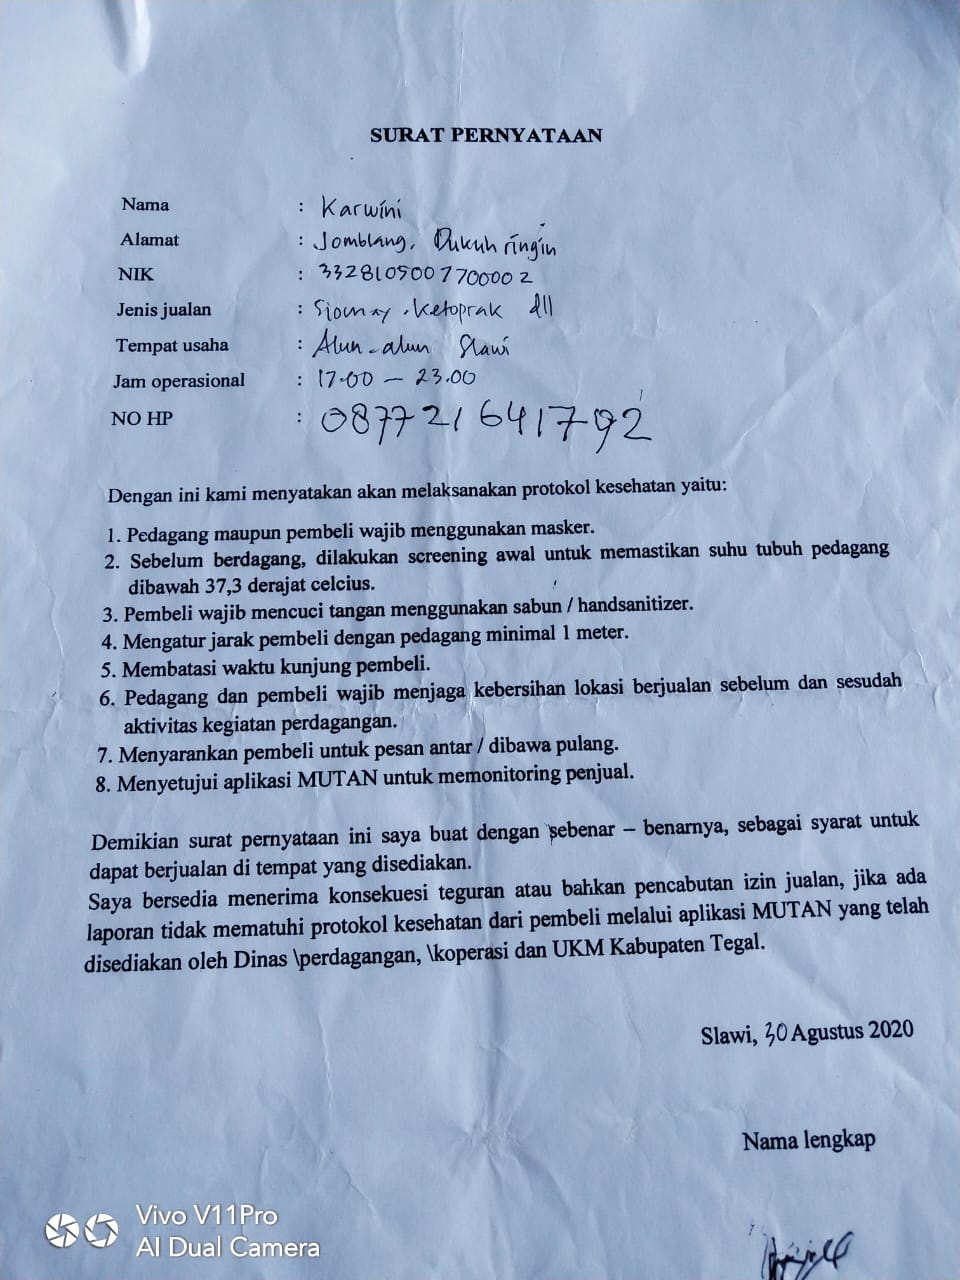 SURAT PERNYATAAN
Nama : Karwini
Alamat : Jomblang, Dukuh ringin
NIK : 3328105007700002
Jenis jualan : Siomay, Ketoprak dll
Tempat usaha : Alun-alun Slawi
Jam operasional : 17.00 – 23.00
NO HP : 087721641792
Dengan ini kami menyatakan akan melaksanakan protokol kesehatan yaitu:
1. Pedagang maupun pembeli wajib menggunakan masker.
2. Sebelum berdagang, dilakukan screening awal untuk memastikan suhu tubuh pedagang
dibawah 37,3 derajat celcius.
3. Pembeli wajib mencuci tangan menggunakan sabun / handsanitizer.
4. Mengatur jarak pembeli dengan pedagang minimal 1 meter.
5. Membatasi waktu kunjung pembeli.
6. Pedagang dan pembeli wajib menjaga kebersihan lokasi berjualan sebelum dan sesudah
aktivitas kegiatan perdagangan.
7. Menyarankan pembeli untuk pesan antar / dibawa pulang.
8. Menyetujui aplikasi MUTAN untuk memonitoring penjual.
Demikian surat pernyataan ini saya buat dengan sebenar – benarnya, sebagai syarat untuk
dapat berjualan di tempat yang disediakan.
Saya bersedia menerima konsekuesi teguran atau bahkan pencabutan izin jualan, jika ada
laporan tidak mematuhi protokol kesehatan dari pembeli melalui aplikasi MUTAN yang telah
disediakan oleh Dinas \perdagangan, \koperasi dan UKM Kabupaten Tegal.
Slawi, 30 Agustus 2020
Nama lengkap
Vivo V11Pro
AI Dual Camera